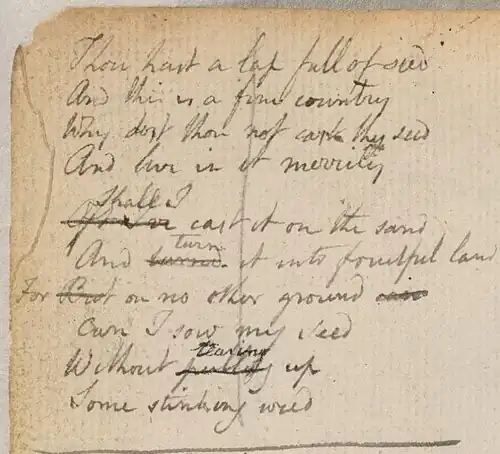 Thou hast a lap full of seed
And this is a fine country
Why dost thou not cast thy seed
And live in it merrily
Shall I
cast it on the sand
turn
And turne it into fruitful land
For But on no other ground can
Can I sow my seed
tearing
Without pulling up
Some stinking weed